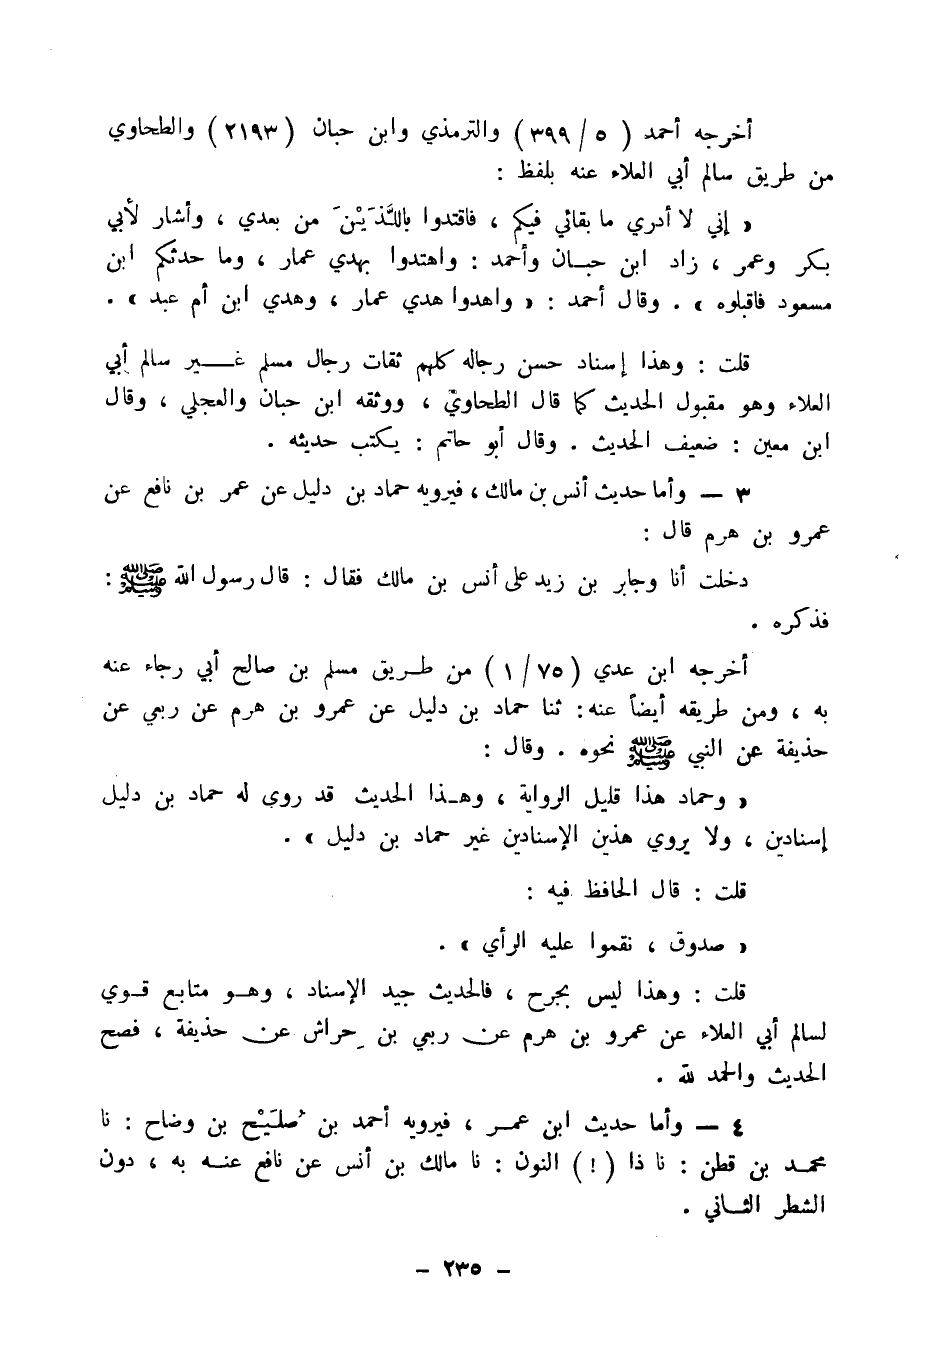 أخرجه أحمد ( ٥ / ٣٩٩ ) والترمذي وابن حبان ( ٢١٩٣ ) والطحاوي
من طريق سالم أبي العلاء عنه بلفظ :
« إني لا أدري ما بقائي فيكم ، فاقتدوا باللَّذَيْنَ من بعدي ، وأشار لأبي
بكر وعمر ، زاد ابن حبان وأحمد : واهتدوا بهدي عمار ، وما حدثكم ابن
مسعود فاقبلوه » . وقال أحمد : « واهدوا هدي عمار ، وهدي ابن أم عبد » .
قلت : وهذا إسناد حسن رجاله كلهم ثقات رجال مسلم غير سالم أبي
العلاء وهو مقبول الحديث كما قال الطحاويّ ، ووثقه ابن حبان والعجلي ، وقال
ابن معين : ضعيف الحديث . وقال أبو حاتم : يكتب حديثه .
٣ – وأما حديث أنس بن مالك ، فيرويه حماد بن دليل عن عمر بن نافع عن
عمرو بن هرم قال :
دخلت أنا وجابر بن زيد على أنس بن مالك فقال : قال رسول الله ﷺ :
فذكره .
أخرجه ابن عدي ( ٧٥ / ١ ) من طريق مسلم بن صالح أبي رجاء عنه
به ، ومن طريقه أيضاً عنه : ثنا حماد بن دليل عن عمرو بن هرم عن ربعي عن
حذيفة عن النبي ﷺ نحوه . وقال :
« وحماد هذا قليل الرواية ، وهذا الحديث قد روى له حماد بن دليل
إسنادين ، ولا يروي هذين الإسنادين غير حماد بن دليل » .
قلت : قال الحافظ فيه :
« صدوق ، نقموا عليه الرأي » .
قلت : وهذا ليس بجرح ، فالحديث جيد الإسناد ، وهو متابع قوي
لسالم أبي العلاء عن عمرو بن هرم عن ربعي بن حراش عن حذيفة ، فصح
الحديث والحمد لله .
٤ – وأما حديث ابن عمر ، فيرويه أحمد بن صُلَيْح بن وضاح : نا
محمد بن قطن : نا ذا ( ! ) النون : نا مالك بن أنس عن نافع عنه به ، دون
الشطر الثاني .
– ٢٣٥ –